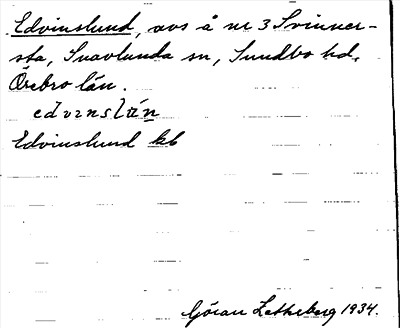 Edvinslund, avs å nr 3 Svinner-
sta, Snavlunda sn, Sundbo hd,
Örebro län.
edvinslun
Edvinslund kb
Göran Zetherberg 1934.